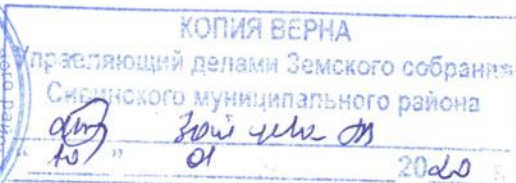 КОПИЯ ВЕРНА
Управляющий делами Земского собрания
Сивинского муниципального района
Зайцева
“ 10 ” 01 2020 г.